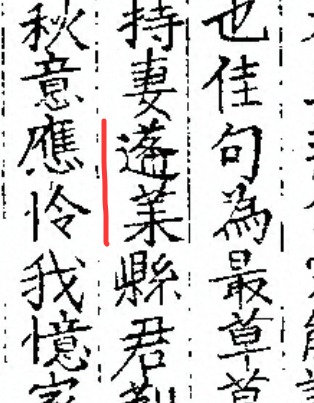 也佳句為最草草
持妻蓬莱縣君
秋意應怜我憶家